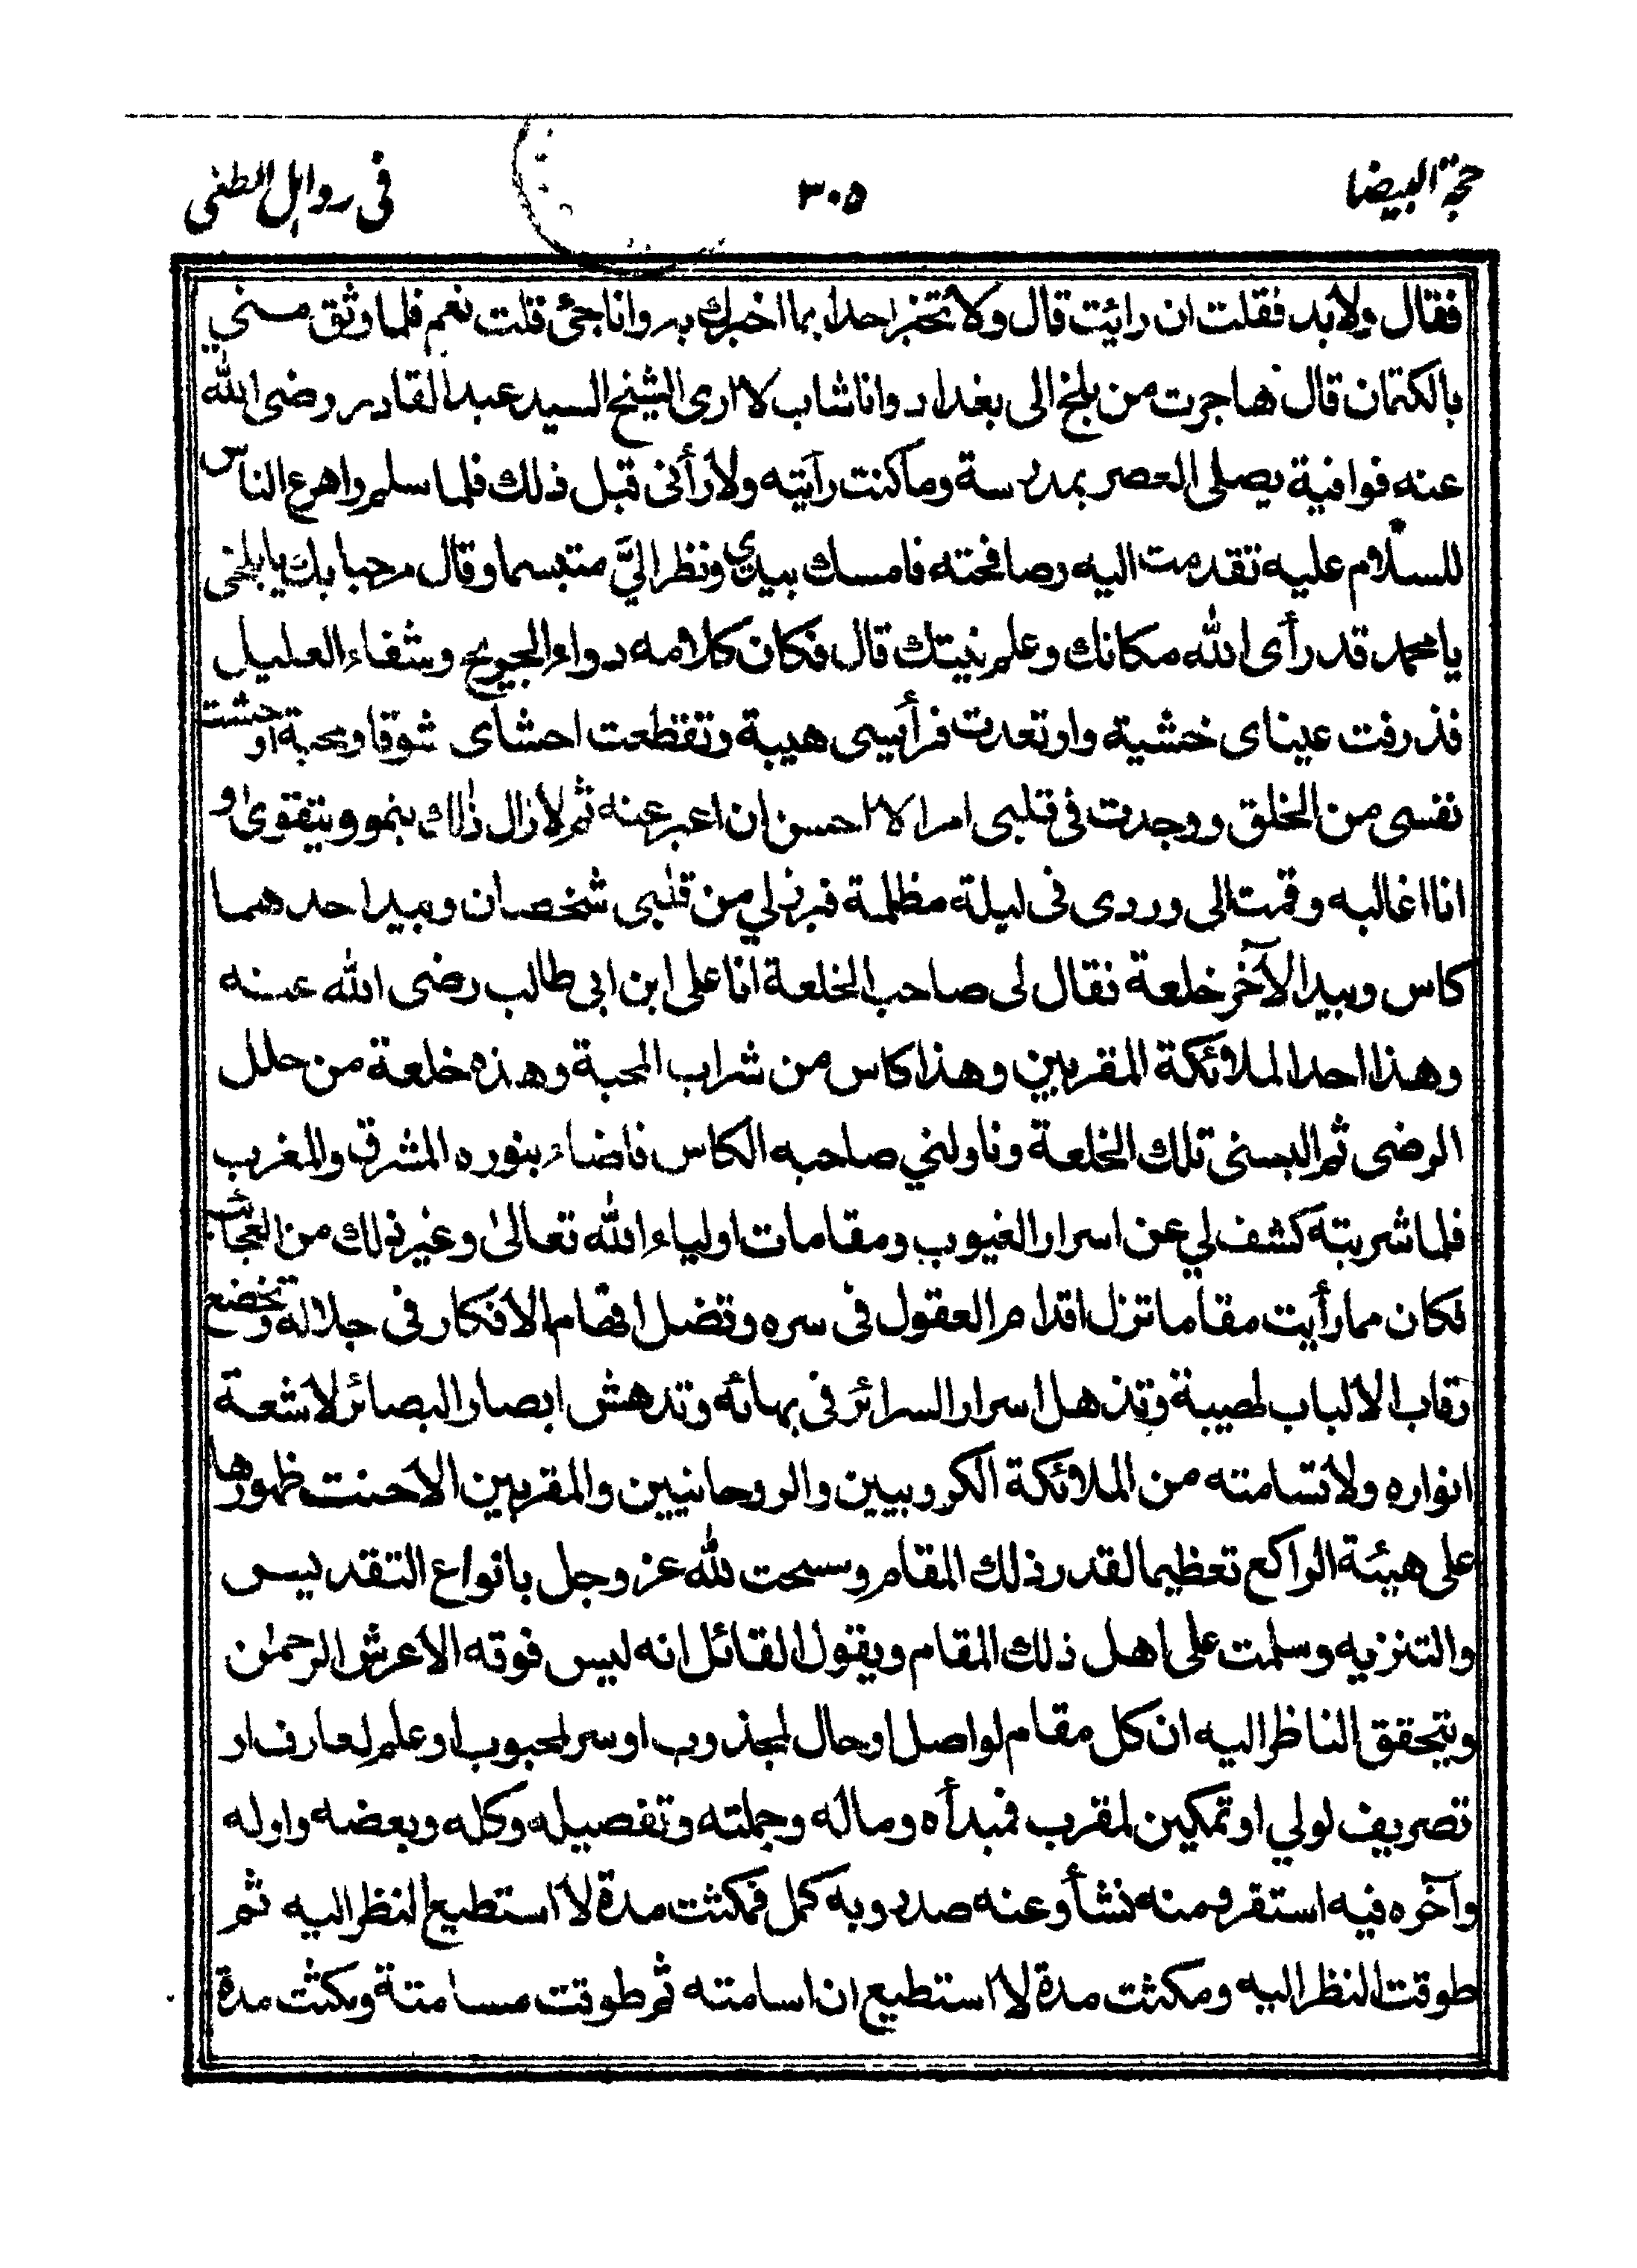 حجة البيضا ٣٠٥ في رد اهل الطغى
فقال ولابد فقلت ان رائيت قال ولا تخبر احدا بما اخبرك به وانا حى قلت نعم فلما وثق منى
بالكتمان قال هاجرت من بلخ الى بغداد وانا شاب لا ارى الشيخ السيد عبد القادر رضى الله
عنه فوافية يصلى العصر بمدرسة وما كنت رآيته ولا رأنى قبل ذلك فلما سلم واهرع الناس
للسلام عليه تقدمت اليه وصافحته فامسك بيدي ونظر اليّ متبسما وقال مرحبا بك يا بلخى
يا محمد قد رأى الله مكانك وعلم نيتك قال فكان كلامه دواء الجريح وشفاء العليل
فذرفت عيناى خشية وارتعدت فرأيسى هيبة وتقطعت احشآى شوقا ومحبة اوحشت
نفسى من الخلق ووجدت فى قلبى امرا لا احسن ان اعبر عنه ثم لازال ذلك ينمو ويتقوى و
انا اغالبه وقمت الى وردى فى ليلة مظلمة فبرز لي من قلبى شخصان وبيد احدهما
كاس وبيد الآخر خلعة فقال لى صاحب الخلعة انا على ابن ابى طالب رضى الله عنه
وهذا احد الملائكة المقربين وهذا كاس من شراب المحبة وهذه خلعة من حلل
الرضى ثم البسنى تلك الخلعة وناولني صاحبه الكاس فاضاء بنوره المشرق والمغرب
فلما شربته كشف لي عن اسرار الغيوب ومقامات اولياء الله تعالى وغير ذلك من العجائب
فكان مما رأيت مقاما تزل اقدام العقول فى سره وتضل افهام الافكار فى جلاله وتخضع
رقاب الالباب لهيبة وتذهل اسرار السرائر فى بهائه وتدهش ابصار البصائر لاشعة
انواره ولا تسامته من الملائكة الكروبيين والروحانيين والمقربين الاحنت ظهورها
على هيئة الراكع تعظيما لقدر ذلك المقام وسبحت لله عز وجل بانواع التقديس
والتنزيه وسلمت على اهل ذلك المقام ويقول القائل انه ليس فوقه الا عرش الرحمن
ويتحقق الناظر اليه ان كل مقام لواصل او حال لمجذوب او سر لمحبوب او علم لعارف او
تصريف لولي او تمكين لمقرب فمبدأه وماله وجملته وتفصيله وكله وبعضه واوله
وآخره فيه استقر ومنه نشأ وعنه صدر وبه كمل فمكثت مدة لا استطيع النظر اليه ثم
طوقت النظر اليه ومكثت مدة لا استطيع ان اسامته ثم طوقت مسامتة ومكثت مدة